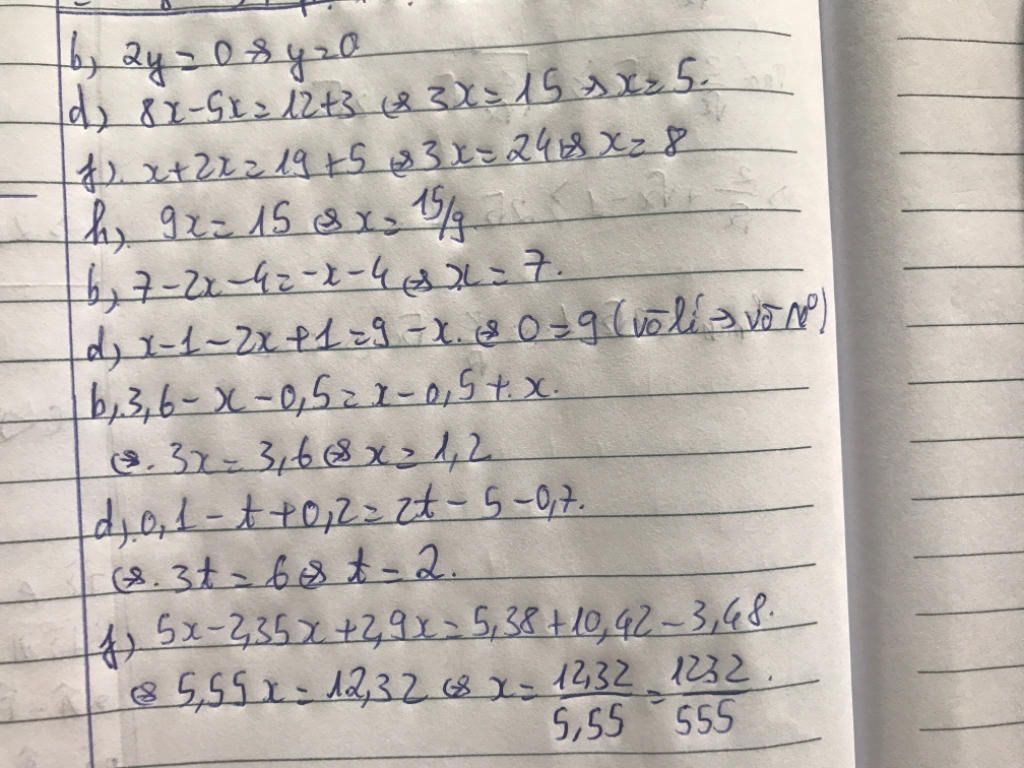 b, 2y = 0 ⇔ y = 0
d, 8x - 5x = 12 + 3 ⇔ 3x = 15 ⇔ x = 5.
f). x + 2x = 19 + 5 ⇔ 3x = 24 ⇔ x = 8
h). 9x = 15 ⇔ x = 15/9
b, 7 - 2x - 4 = -x - 4 ⇔ x = 7.
d, x - 1 - 2x + 1 = 9 - x. ⇔ 0 = 9 (vô lí → vô N⁰)
b, 3,6 - x - 0,5 = x - 0,5 + x.
⇔. 3x = 3,6 ⇔ x = 1,2
d, 0,1 - t + 0,2 = 2t - 5 - 0,7.
⇔. 3t = 6 ⇔ t = 2.
f) 5x - 2,35x + 2,9x = 5,38 + 10,42 - 3,48.
⇔ 5,55x = 12,32 ⇔ x = 12,32/5,55 = 1232/555.